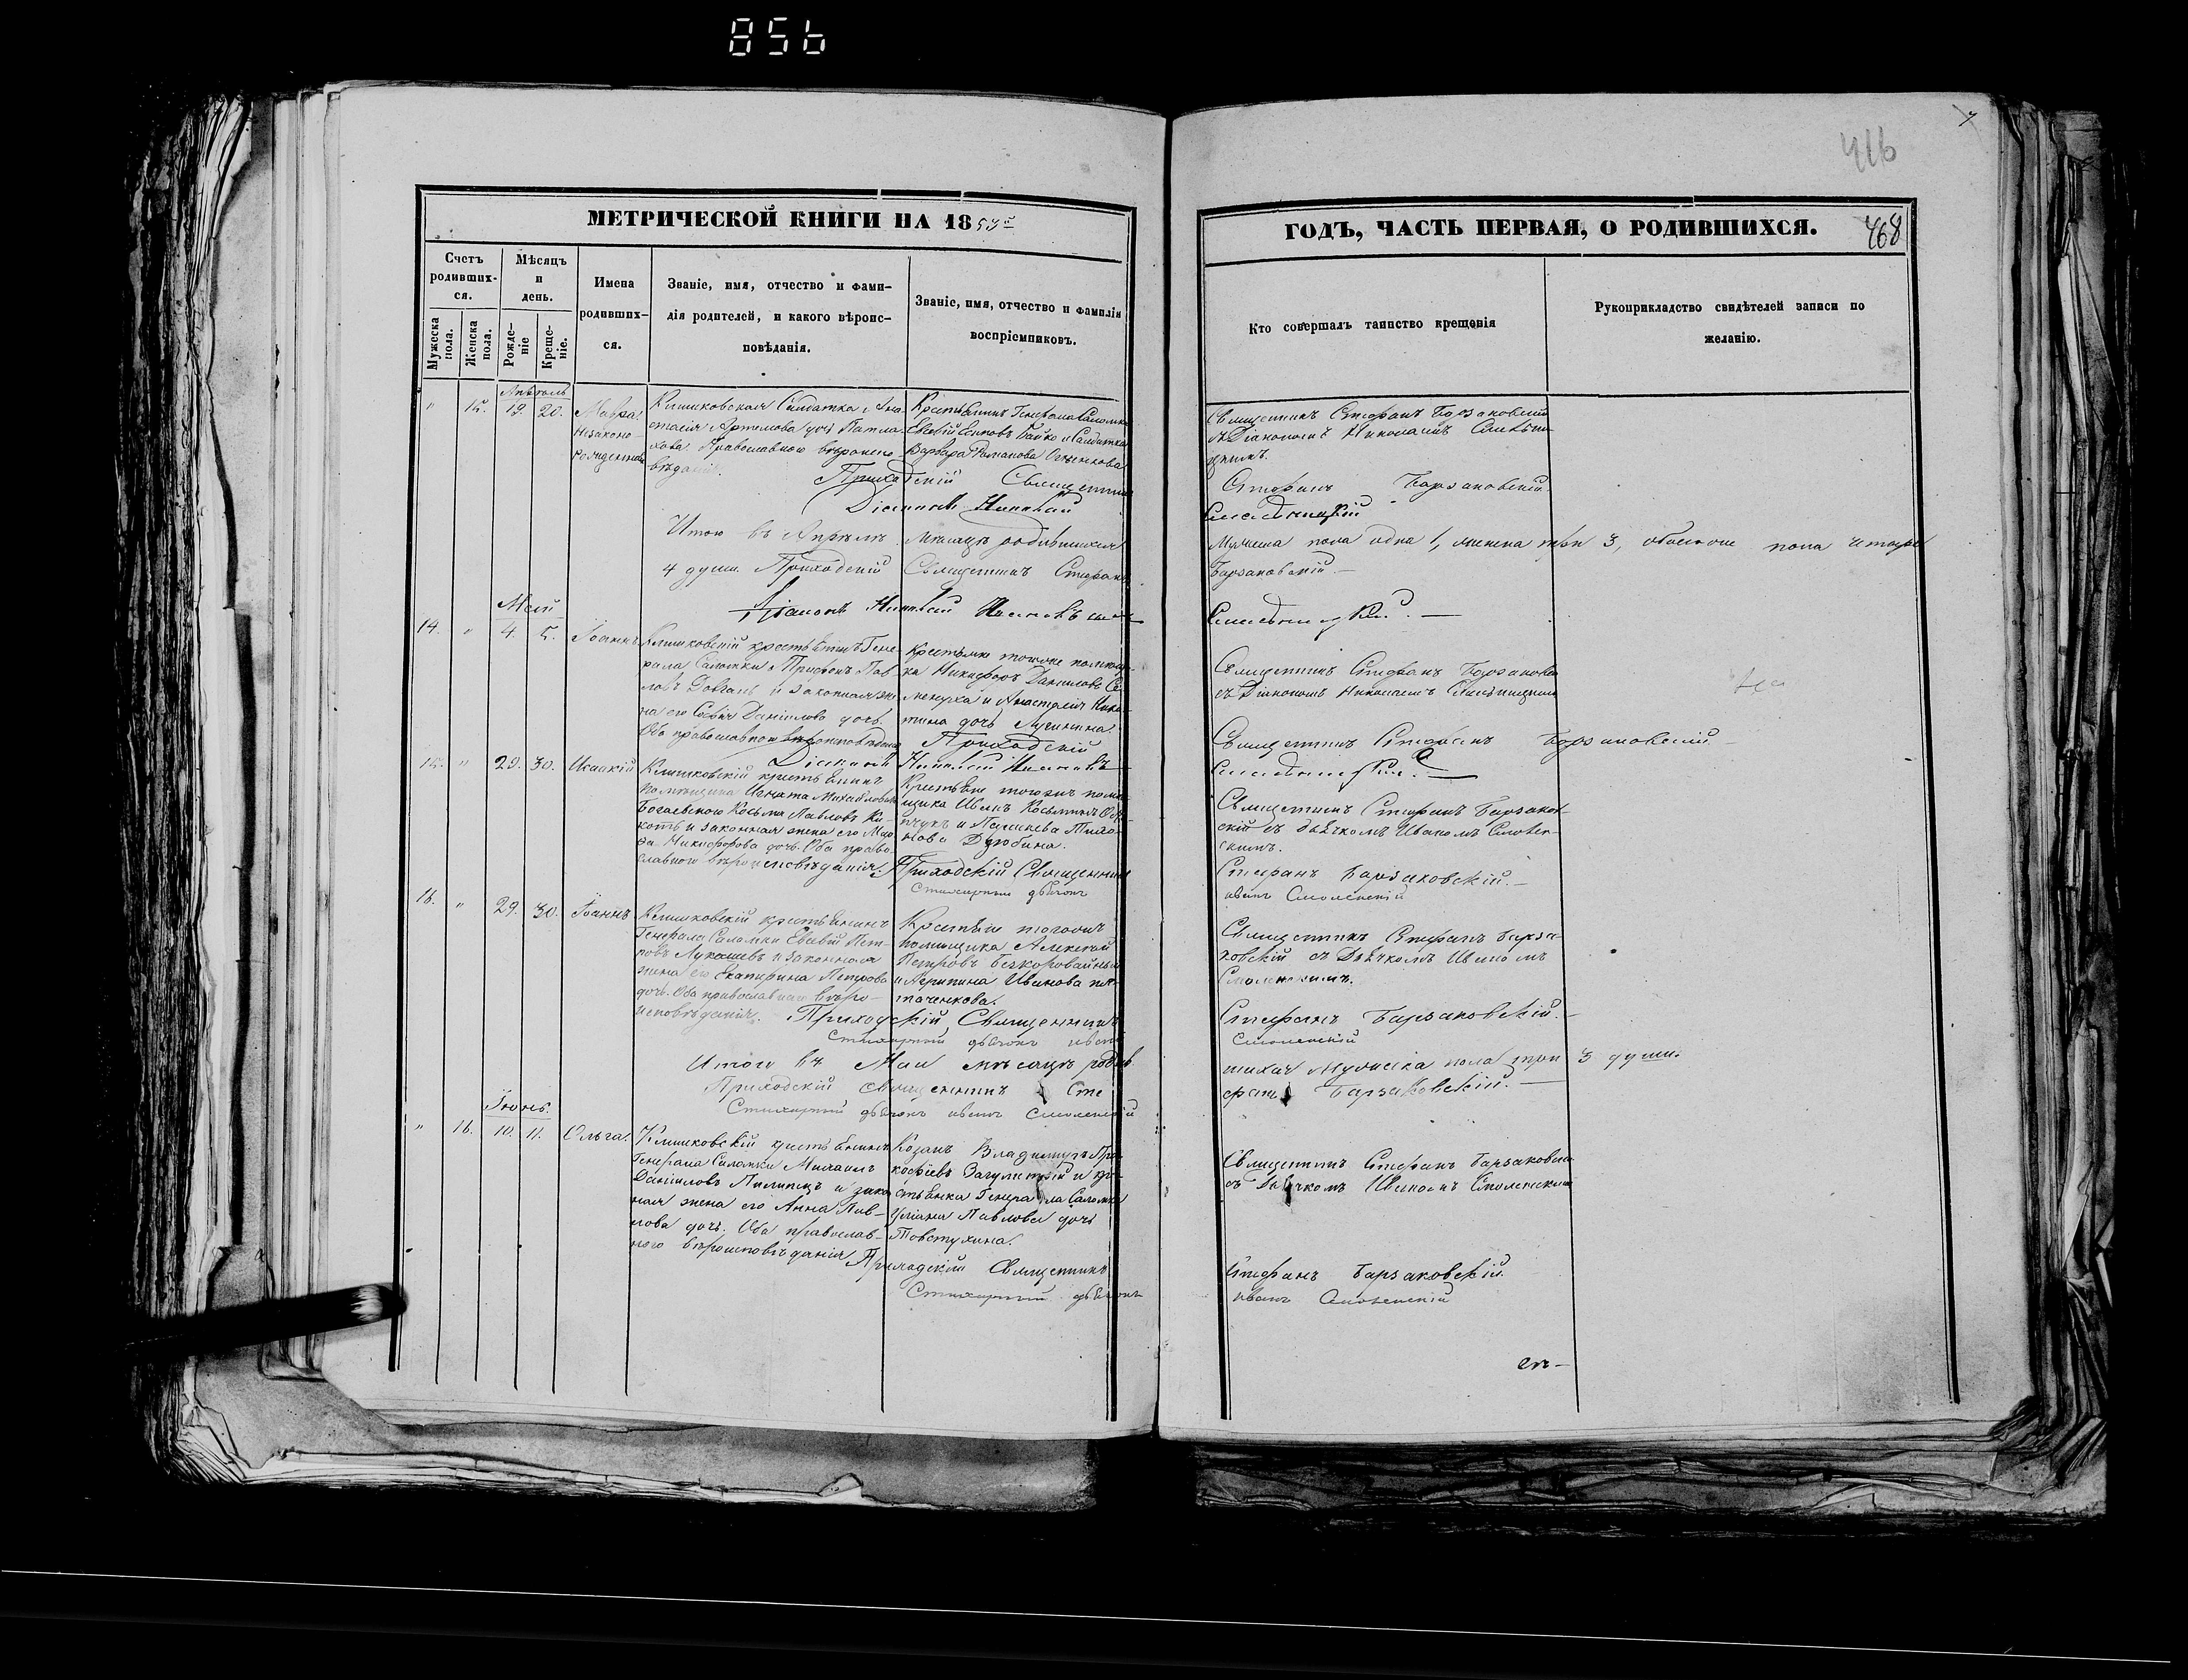 856
7
416
МЕТРИЧЕСКОЙ КНИГИ НА 1853й
Счетъ родившихся.
Мужеска пола.
Женска пола.
Мѣсяцъ и день.
Рожденіе
Крещеніе.
Имена
родивших-
ся.
Званіе, имя, отчество и фами-
лія родителей, и какого вѣроис-
повѣданія.
Званіе, имя, отчество и фамилія
воспріемниковъ.
ГОДЪ, ЧАСТЬ ПЕРВАЯ, О РОДИВШИХСЯ.
468
Кто совершалъ таинство крещенія
Рукоприкладство свидѣтелей записи по
желанію.
Апрѣль
" 15. 19. 20.
Мавра
Незаконо-
рожденная
Климковская Солдатка Ана-
стасія Артемова дочь Патла-
хова Православного вѣроиспо-
вѣданія.
Крестьянинъ Генерала Саломки
Евсевій Бойко и Салдатка
Варвара Романова
Священникъ Стефанъ Барзаковскій
съ Діакономъ Николаемъ
Приходскій Священникъ
Стефанъ Барзаковскій
Діаконъ Николай
Итого въ Апрѣлѣ Мѣсяцѣ родившихся
Мужеска пола одна 1, женска три 3, обоего пола четыре
4 души. Приходскій Священникъ Стефанъ
Барзаковскій.
Діаконъ Николай
Май
14. " 4. 5.
Іоаннъ
Климковскій крестьянинъ Гене-
рала Саломки Павловъ Довгань и законная же-
на его Софія Даніилова дочь.
Оба православного вѣроисповѣданія
Крестьяне тогоже помѣщи-
ка Никифоръ Даниловъ Се-
менуха и Анастасія Ники-
тина дочь
Священникъ Стефанъ Барзаковскій
съ Діакономъ Николаемъ
Приходскій
Священникъ Стефанъ Барзаковскій
Діаконъ Николай
15. " 29. 30.
Исаакій
Климковскій крестьянинъ
помѣщика Игната Михайловича
Богаевского Косьма Павловъ Ки-
коть и законная жена его Мар-
Никифорова дочь. Оба право-
славного вѣроисповѣданія.
Крестьяне тогожъ помѣ-
щика Иванъ Косьминъ
и Тихо-
нова Дзюбина.
Священникъ Стефанъ Барзаков-
скій съ дьячкомъ Иваномъ Смолен-
скимъ.
Приходскій Священникъ
Стефанъ Барзаковскій.
Стихарный дьячокъ
иванъ Смоленскій
16. " 29. 30.
Іоаннъ
Климковскій крестьянинъ
Генерала Саломки Евсевій Пет-
ровъ Лукашевъ и законная
жена его Екатерина Петрова
дочь. Оба православного вѣро-
исповѣданія.
Крестьяне тогожъ
помѣщика Алексѣй
Петровъ Безкоровайный
и Агрипина Иванова
Священникъ Стефанъ Барза-
ковскій съ Дьячкомъ Иваномъ
Смоленскимъ.
Приходскій Священникъ
Стефанъ Барзаковскій.
Стихарный дьячокъ иванъ
Смоленскій
Итого въ Маи мѣсяцѣ родив-
шихся мужеска пола три 3 души.
Приходскій священникъ Сте-
фанъ Барзаковскій.
Стихарный дьячокъ иванъ Смоленскій
Іюнь.
" 16. 10. 11.
Ольга.
Климковскій крестьянинъ
Генерала Саломки Михаилъ
Даніиловъ Пилипецъ и закон-
ная жена его Анна Пав-
лова дочь. Оба православ-
ного вѣроисповѣданія
Козакъ Владимиръ Про-
кофіевъ и кре-
стьянка Генерала Саломки
Уліана Павлова дочь
Товстухина.
Священникъ Стефанъ Барзаковскій
съ Дьячкомъ Иваномъ Смоленскимъ
Приходскій Священникъ
Стефанъ Барзаковскій.
Стихарный дьячокъ
иванъ Смоленскій